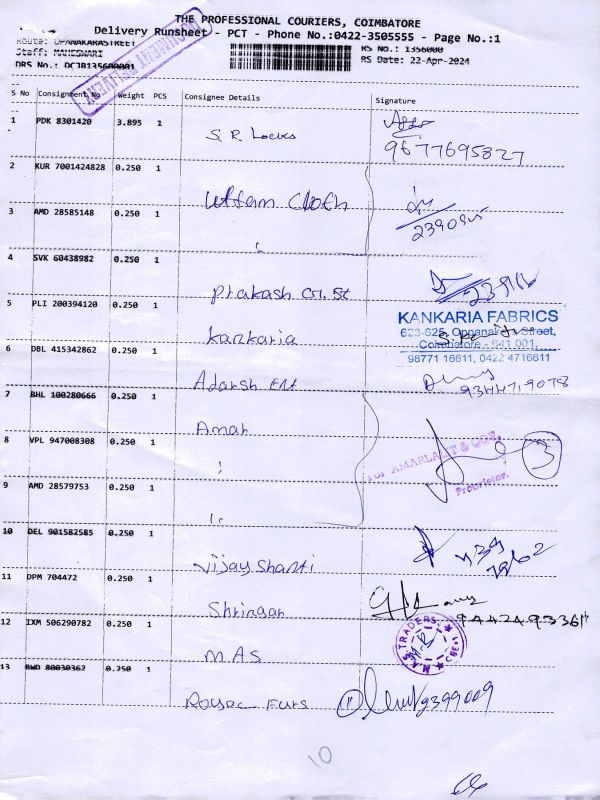 THE PROFESSIONAL COURIERS, COIMBATORE
Delivery Runsheet - PCT - Phone No.:0422-3505555 - Page No.:1
Route: OPANAKARASTREET
Staff: MAHESWARI RS No.: 1356000
DRS No.: DCJB135600001 RS Date: 22-Apr-2024
DOCUMENT DELIVERY
S No Consignment No Weight PCS Consignee Details Signature
1 PDK 8301420 3.895 1 S.R. Locks 9677695827
2 KUR 7001424828 0.250 1 Uttam Cloth
3 AMD 28585148 0.250 1
4 SVK 60438982 0.250 1 Prakash
5 PLI 200394120 0.250 1 Kankaria
KANKARIA FABRICS
623-625, Oppanakara Street,
Coimbatore - 641 001.
98771 16611, 0422 4716611
6 DBL 415342862 0.250 1 Adarsh 9344719078
7 BHL 100280666 0.250 1 Amar
8 VPL 947008308 0.250 1
For AMARLAL & COY.,
Proprietor.
3
9 AMD 28579753 0.250 1
10 DEL 901582585 0.250 1 Vijay Shanti
11 DPM 704472 0.250 1 Shringar
12 IXM 506290782 0.250 1 MAS
MAS TRADERS
CBE-1
13 BWD 80030362 0.250 1 Furs
10